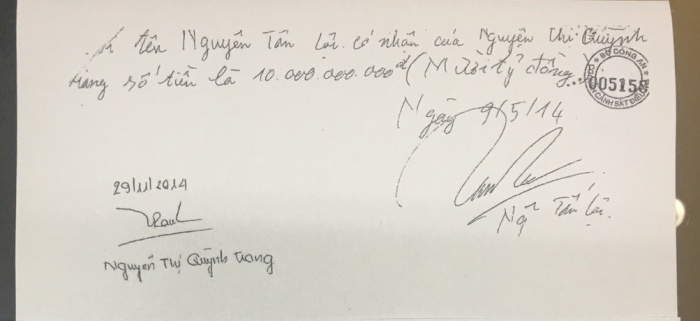 tên Nguyễn Tấn Lợi. có nhận của Nguyễn Thị Quỳnh
Trang số tiền là 10.000.000.000đ (Mười tỷ đồng)
BỘ CÔNG AN
005158
CẢNH SÁT ĐIỀU
Ngày 9/5/14
Ng Tấn Lợi.
29/11/2014
Nguyễn Thị Quỳnh Trang